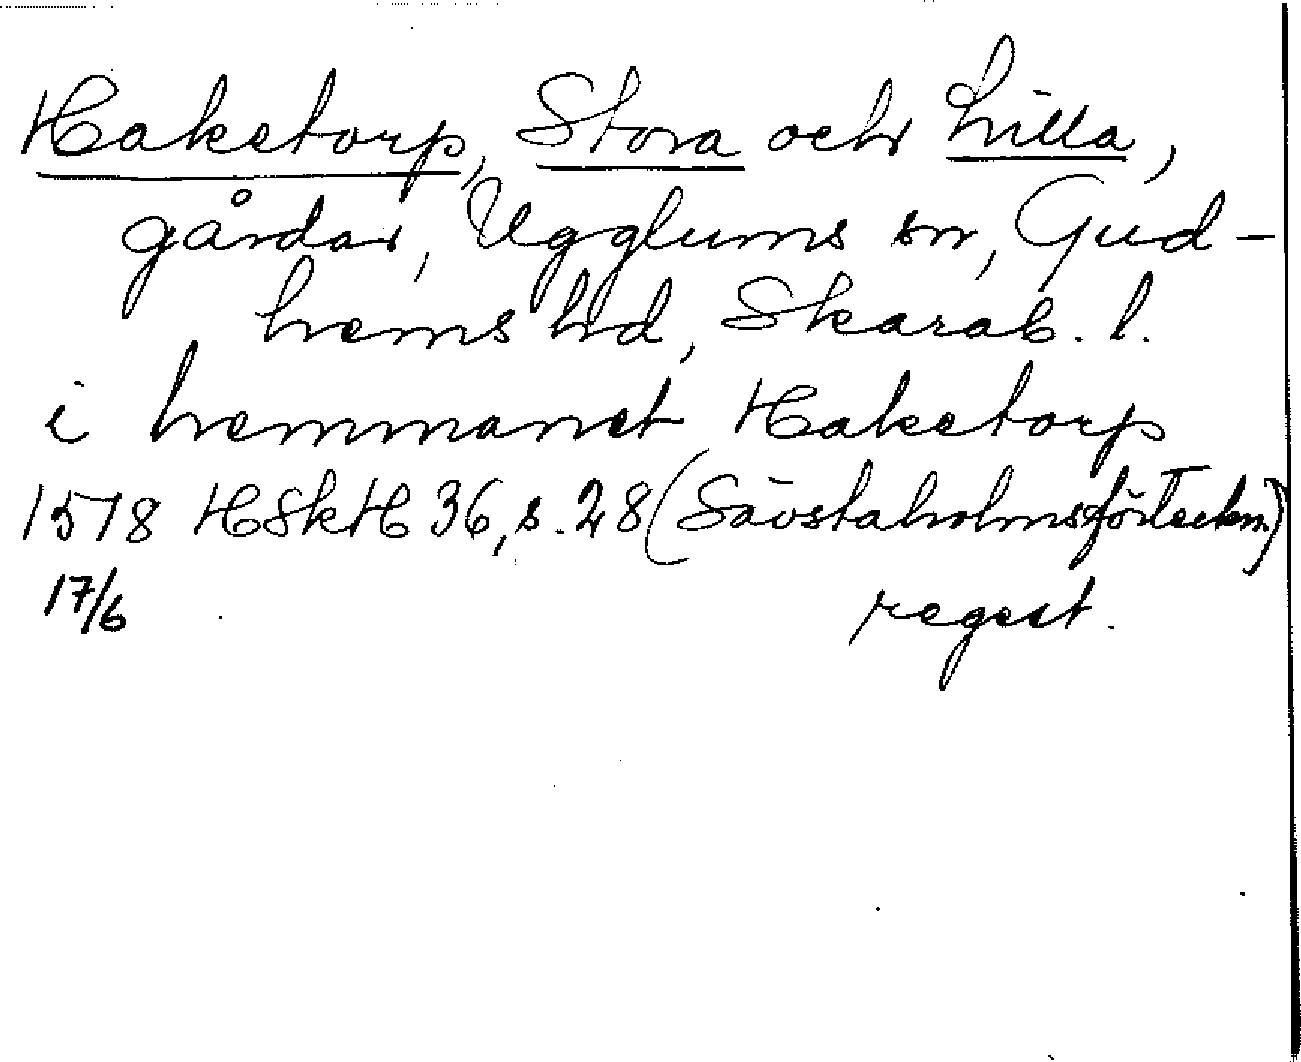 Haketorp, Stora och Lilla,
gårdar, Ugglums sn, Gud-
hems hd, Skarab. l.
i hemmanet Haketorp
1578 HSkH 36, s. 28 (Sävstaholmsförteckn.)
17/6 regest.